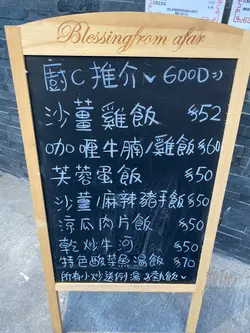 Blessing from afar
廚C推介 GOOD=)
沙薑雞飯 $52
咖喱牛腩/雞飯 $60
芙蓉蛋飯 $50
沙薑/麻辣豬手飯 $50
涼瓜肉片飯 $50
乾炒牛河 $50
特色酸菜魚湯飯 $70
所有小炒送例湯